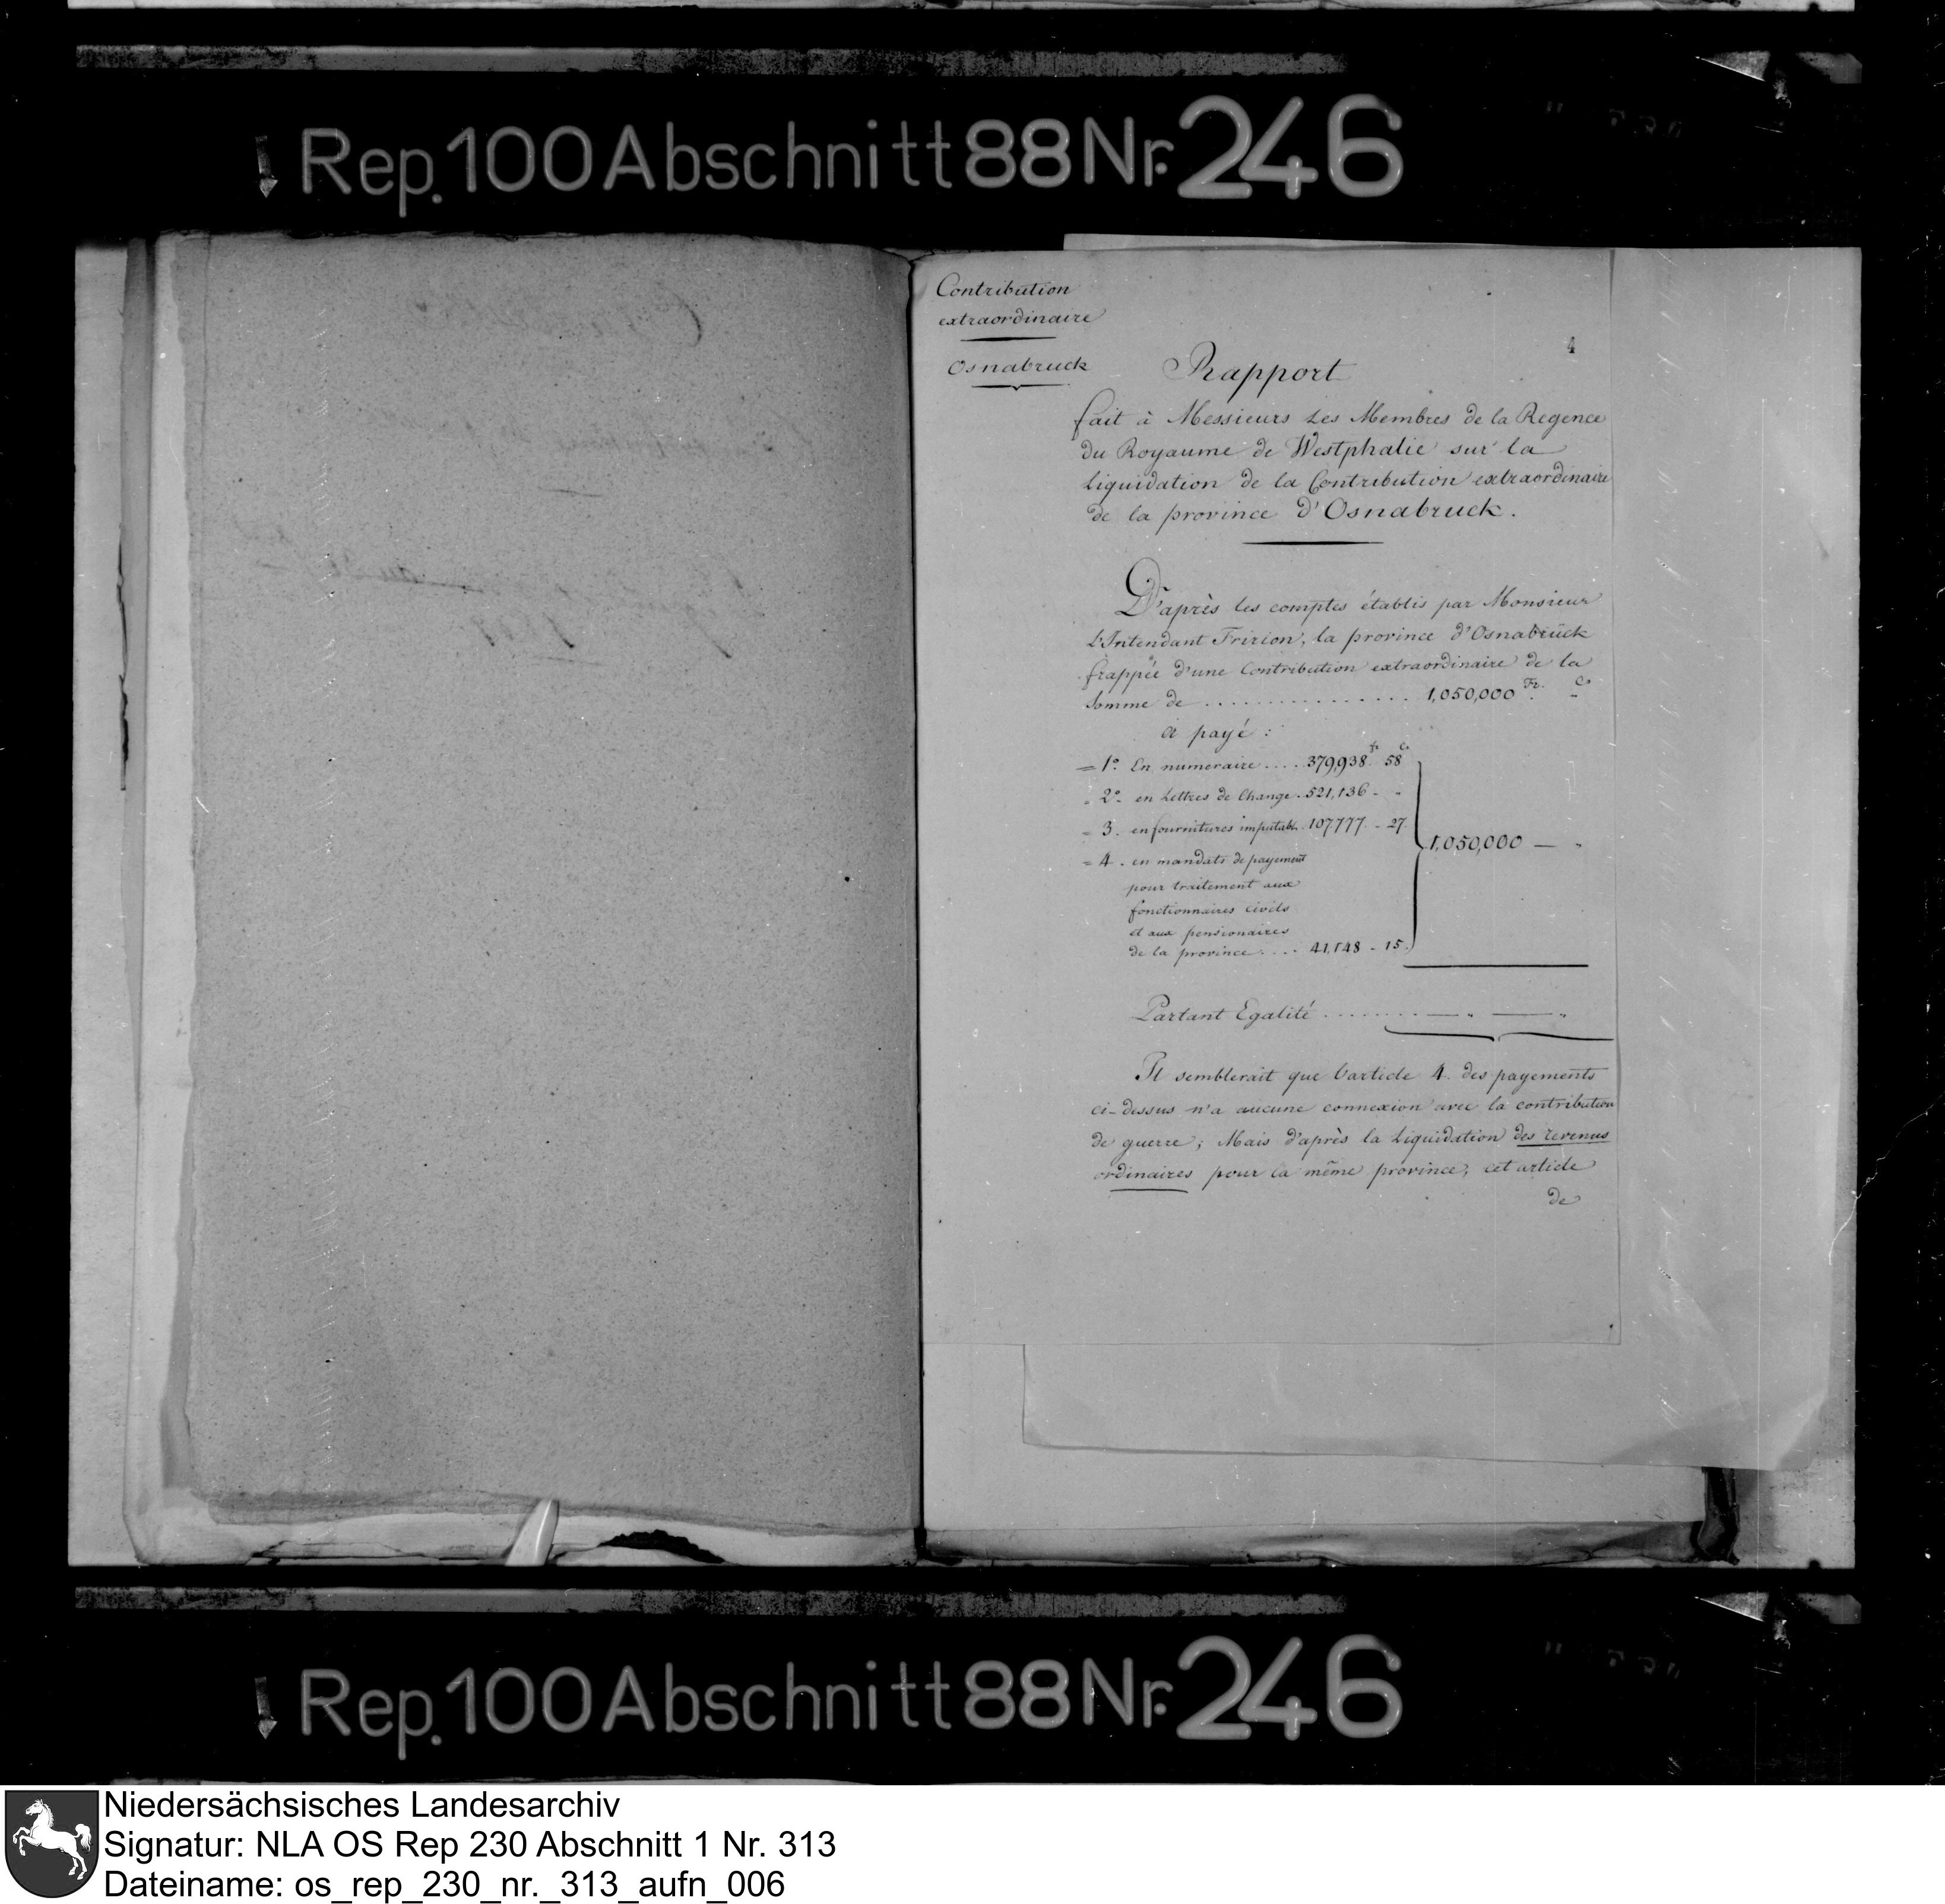 Rep. 100 Abschnitt 88 Nr. 246
Contribution
extraordinaire
Osnabruck
4
Rapport
fait à Messieurs Les Membres de la Regence
du Royaume de Westphalie sur la
Liquidation de la Contribution extraordinaire
de la province d'Osnabruck.
D'après les comptes établis par Monsieur
L'Intendant Fririon, la province d'Osnabrück
frappée d'une Contribution extraordinaire de la
Somme de ................ 1,050,000 Fr. " Cs
a payé :
= 1º. En numeraire .... 379,938 fr 58 Cs
" 2º. en Lettres de Change . 521,136 - "
= 3. en fournitures imputabl. 107,777. - 27.
1,050,000 — "
= 4. en mandats de payement
pour traitement aux
fonctionnaires civils
et aux pensionaires
de la province .... 41,148 - 15.
Partant Egalité ........ — " — "
Il semblerait que l'article 4. des payements
ci-dessus n'a aucune connexion avec la contribution
de guerre; Mais d'après la Liquidation des revenus
ordinaires pour la même province, cet article
de
Rep. 100 Abschnitt 88 Nr. 246
Niedersächsisches Landesarchiv
Signatur: NLA OS Rep 230 Abschnitt 1 Nr. 313
Dateiname: os_rep_230_nr._313_aufn_006